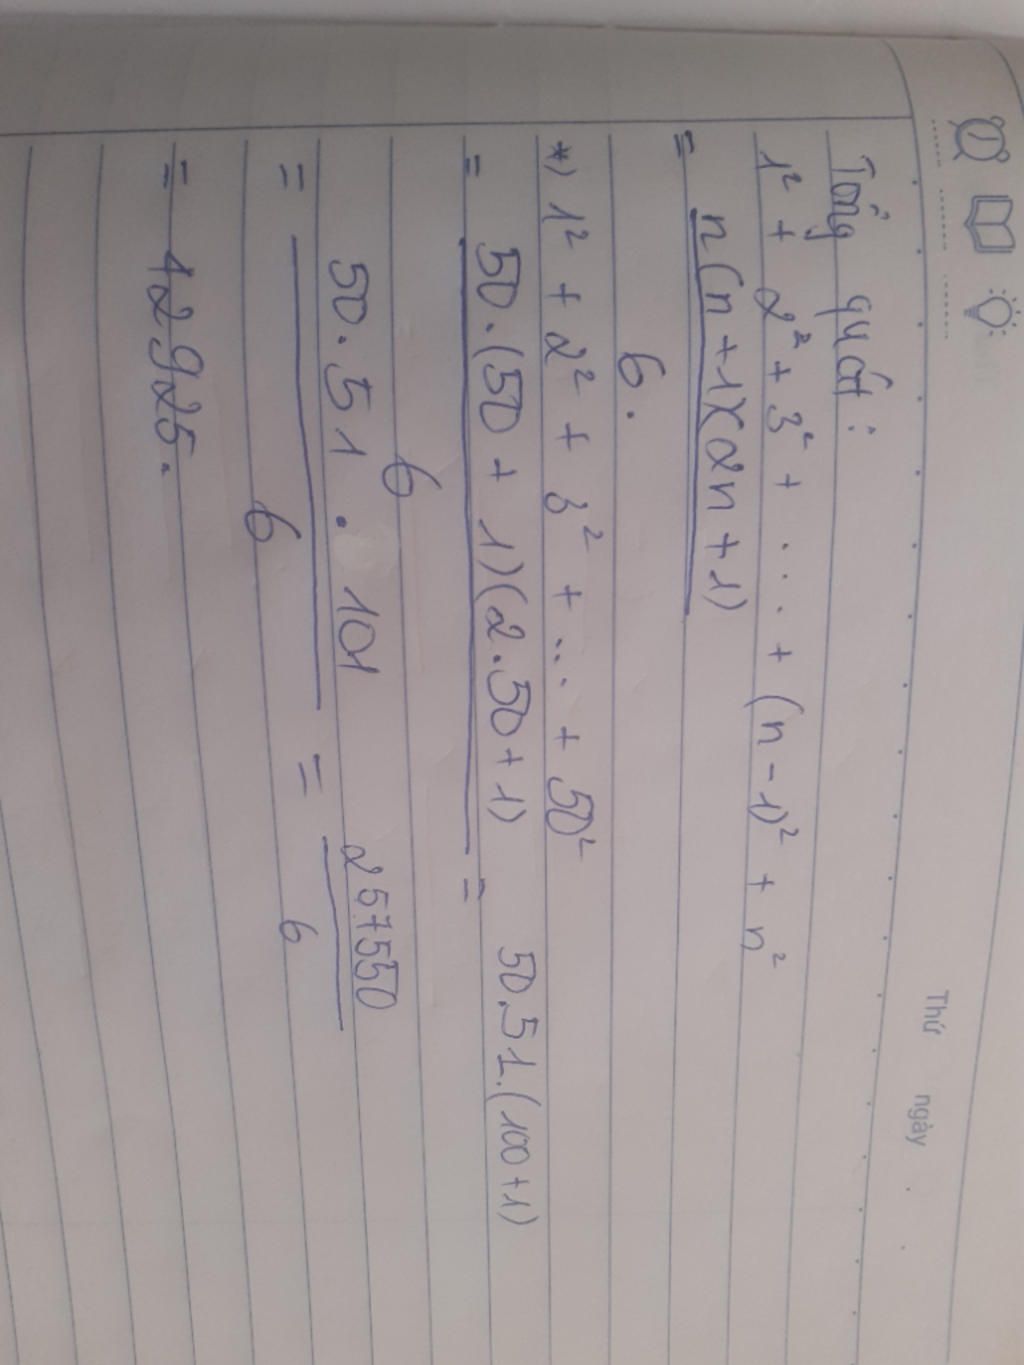 Thứ ngày
Tổng quát:
1² + 2² + 3² + ... + (n - 1)² + n²
= n(n+1)(2n+1)
6.
*) 1² + 2² + 3² + ... + 50²
= 50.(50 + 1)(2.50+1) = 50.51.(100+1)
6
= 50.51.101 = 257550
6 6
= 42925.